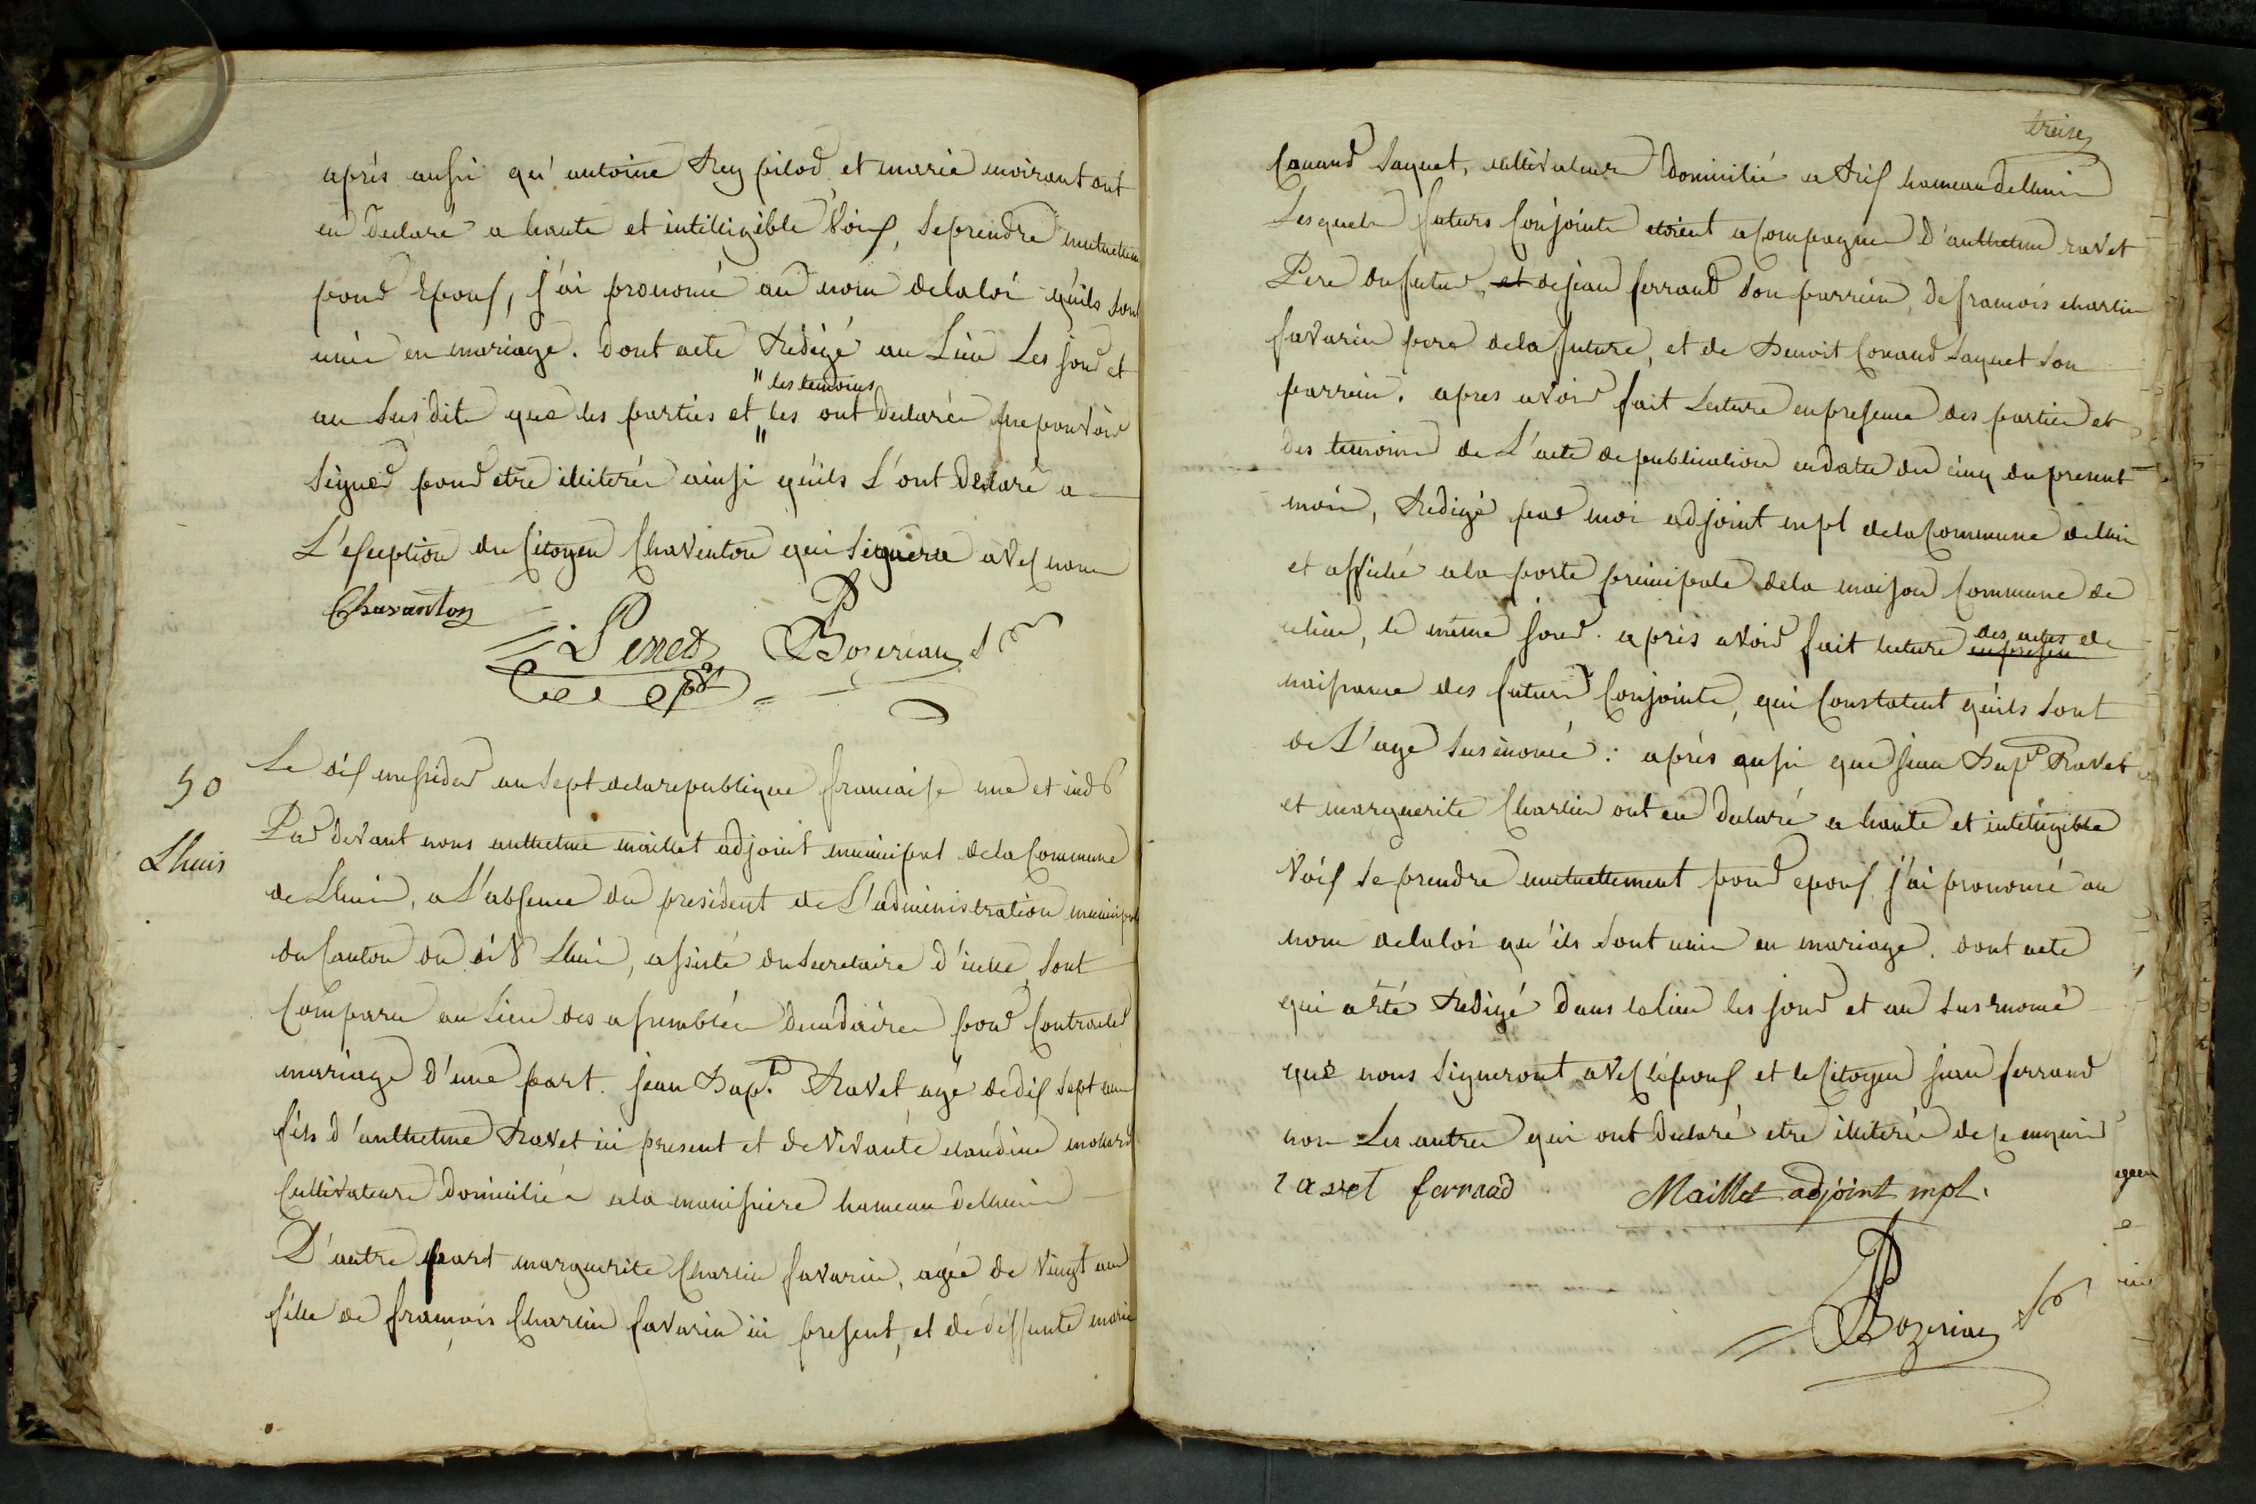 après aussi qu'antoine Rey pilod et marie moirant ont
eu declaré a haute et intilligible Voix, se prendre mutuellem
pour Epoux, j'ai prononcé au nom de la loi qu'ils sont
unis en mariage. Dont acte Redigé au Lieu Les jour et
" les temoins
an Susdits que les parties et les ont declarés ne pouvoir
"
Signer pour etre illiterés ainsi qu'ils L'ont declaré a
L'exception du Citoyen Chaventon qui Signera avec nous
Chavanton
Perret pdt Bozerian S
50
Lhuis
Le dix messidor an sept de la republique francaise une et ind
Par devant nous anthelme maillet adjoint municipal de la Commune
de Lhuis, a L'absence du president de L'administration municipale
du Canton du dit Lhuis, assisté du Secretaire d'icelle, Sont
Comparu au Lieu des assemblées decadaires pour Contracter
mariage d'une part. jean Bapt. Ravet agé de dix sept ans
fils d'anthelme Ravet ici present et de Vivante claudine molard
Cultivateurs Domiciliés a la manissiere hameau de lhuis
D'autre part marguerite Charlin favarin, agée de Vingt ans
fille de françois Charlin favarin ici present, et de deffunte marie
treize
Conand Saquet, cultivateurs Domicilié a Rix hameau de lhuis
Lesquels futurs Conjoints etoient acompagnes D'anthelme ravet
Pere du futur, et de jean ferrand Son parrein, de francois charlin
favarin pere de la future, et de Benoit Conand Saquet Son
parrein. apres avoir fait Lecture en presence des parties et
des temoins de L'acte de publication en date du cinq du present
mois, Redigé par moi adjoint mpl de la Commune de lhuis
et affiché a la porte principale de la maison Commune de
ce lieu, le même jour. après avoir fait lecture en presen des actes de
naissance des futurs Conjoints, qui Constatent qu'ils sont
de L'age susenoncé : après aussi que jean Bapt Ravet
et marguerite Charlin ont eu declaré a haute et inteligible
Voix se prendre mutuellement pour epoux j'ai prononcé au
nom de la loi qu'ils sont unis en mariage. dont acte
qui a eté Redigé dans le lieu les jour et an susnomé
que nous Signeront avec l'epoux et le Citoyen jean ferrand
non Les autres qui ont declaré etre illiterés de ce enquis
ravet ferraad Maillet adjoint mpl.
Bozerian S